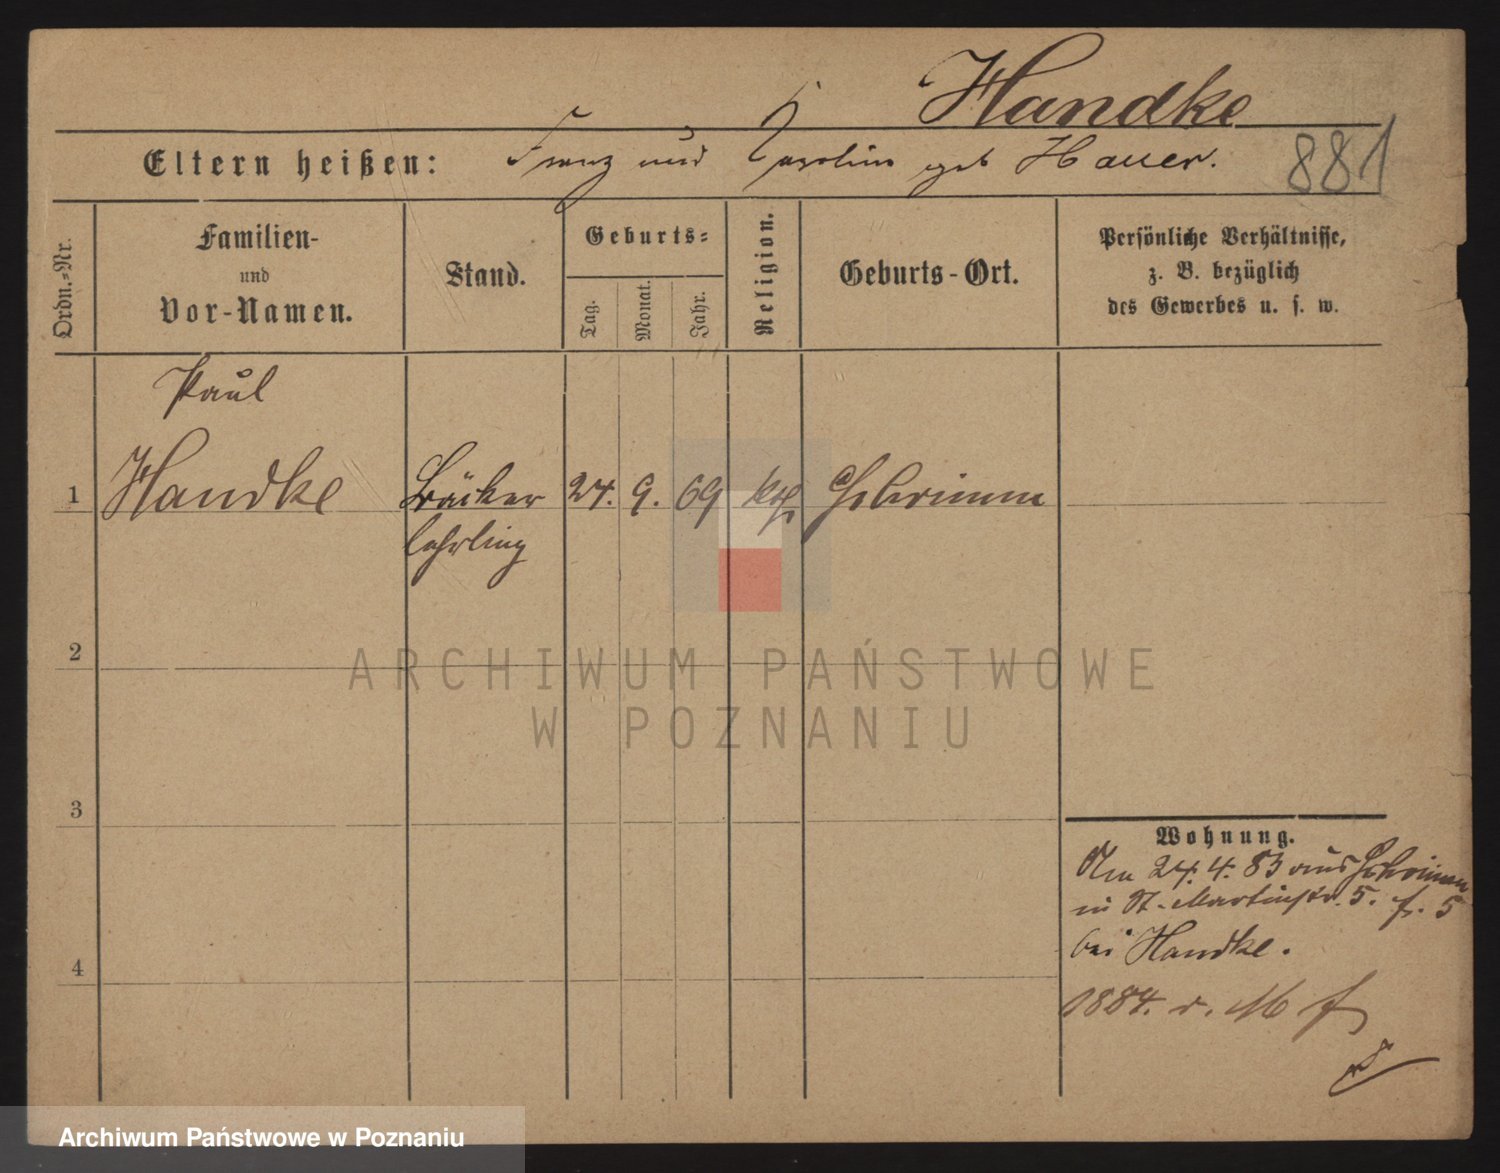 Handke
Eltern heißen: Franz und Karoline geb Hauer. 881
Ordn.-Nr.
Familien-
und
Vor-Namen.
Stand.
Geburts-
Tag.
Monat.
Jahr.
Religion.
Geburts-Ort.
Persönliche Verhältnisse,
z. B. bezüglich
des Gewerbes u. s. w.
Paul
1 Handke Bäcker 24. 9. 69 kth Schrimm
lehrling
2
3
4
Wohnung.
Am 24. 4. 83 aus Schrimm
in St. Martinstr. 5. f. 5
bei Handke.
1884. v. M
ARCHIWUM PAŃSTWOWE
W POZNANIU
Archiwum Państwowe w Poznaniu